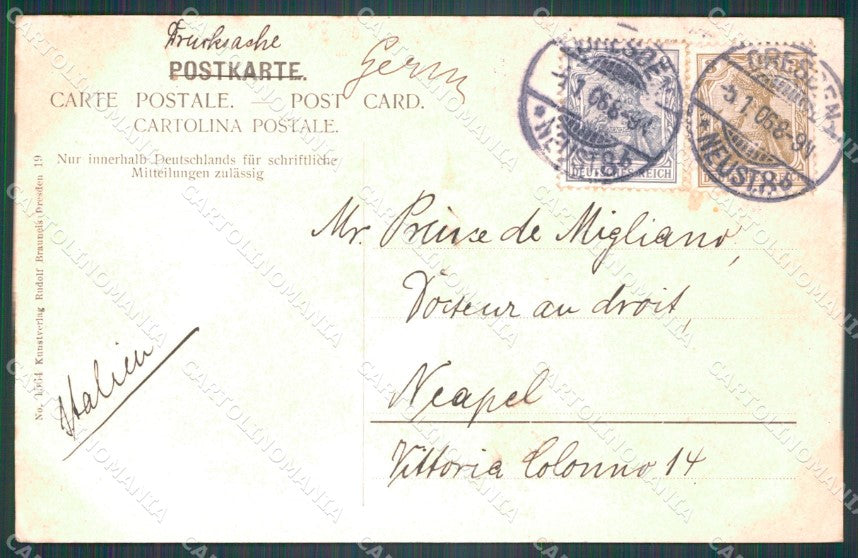 Drucksache
POSTKARTE.
Germ
CARTE POSTALE. — POST CARD.
CARTOLINA POSTALE.
Nur innerhalb Deutschlands für schriftliche
Mitteilungen zulässig
DRESDEN
5.1.06 8-9N
* NEUST. 8 b
DRESDEN
5.1.06 8-9N
* NEUST. 8 b
DEUTSCHES REICH
REICH
Mr. Prinse de Migliano,
Docteur au droit,
Neapel
Vittoria Colonno 14.
Italien
Kunstverlag Rudolf Braun, Dresden 19
CARTOLINOMANIA